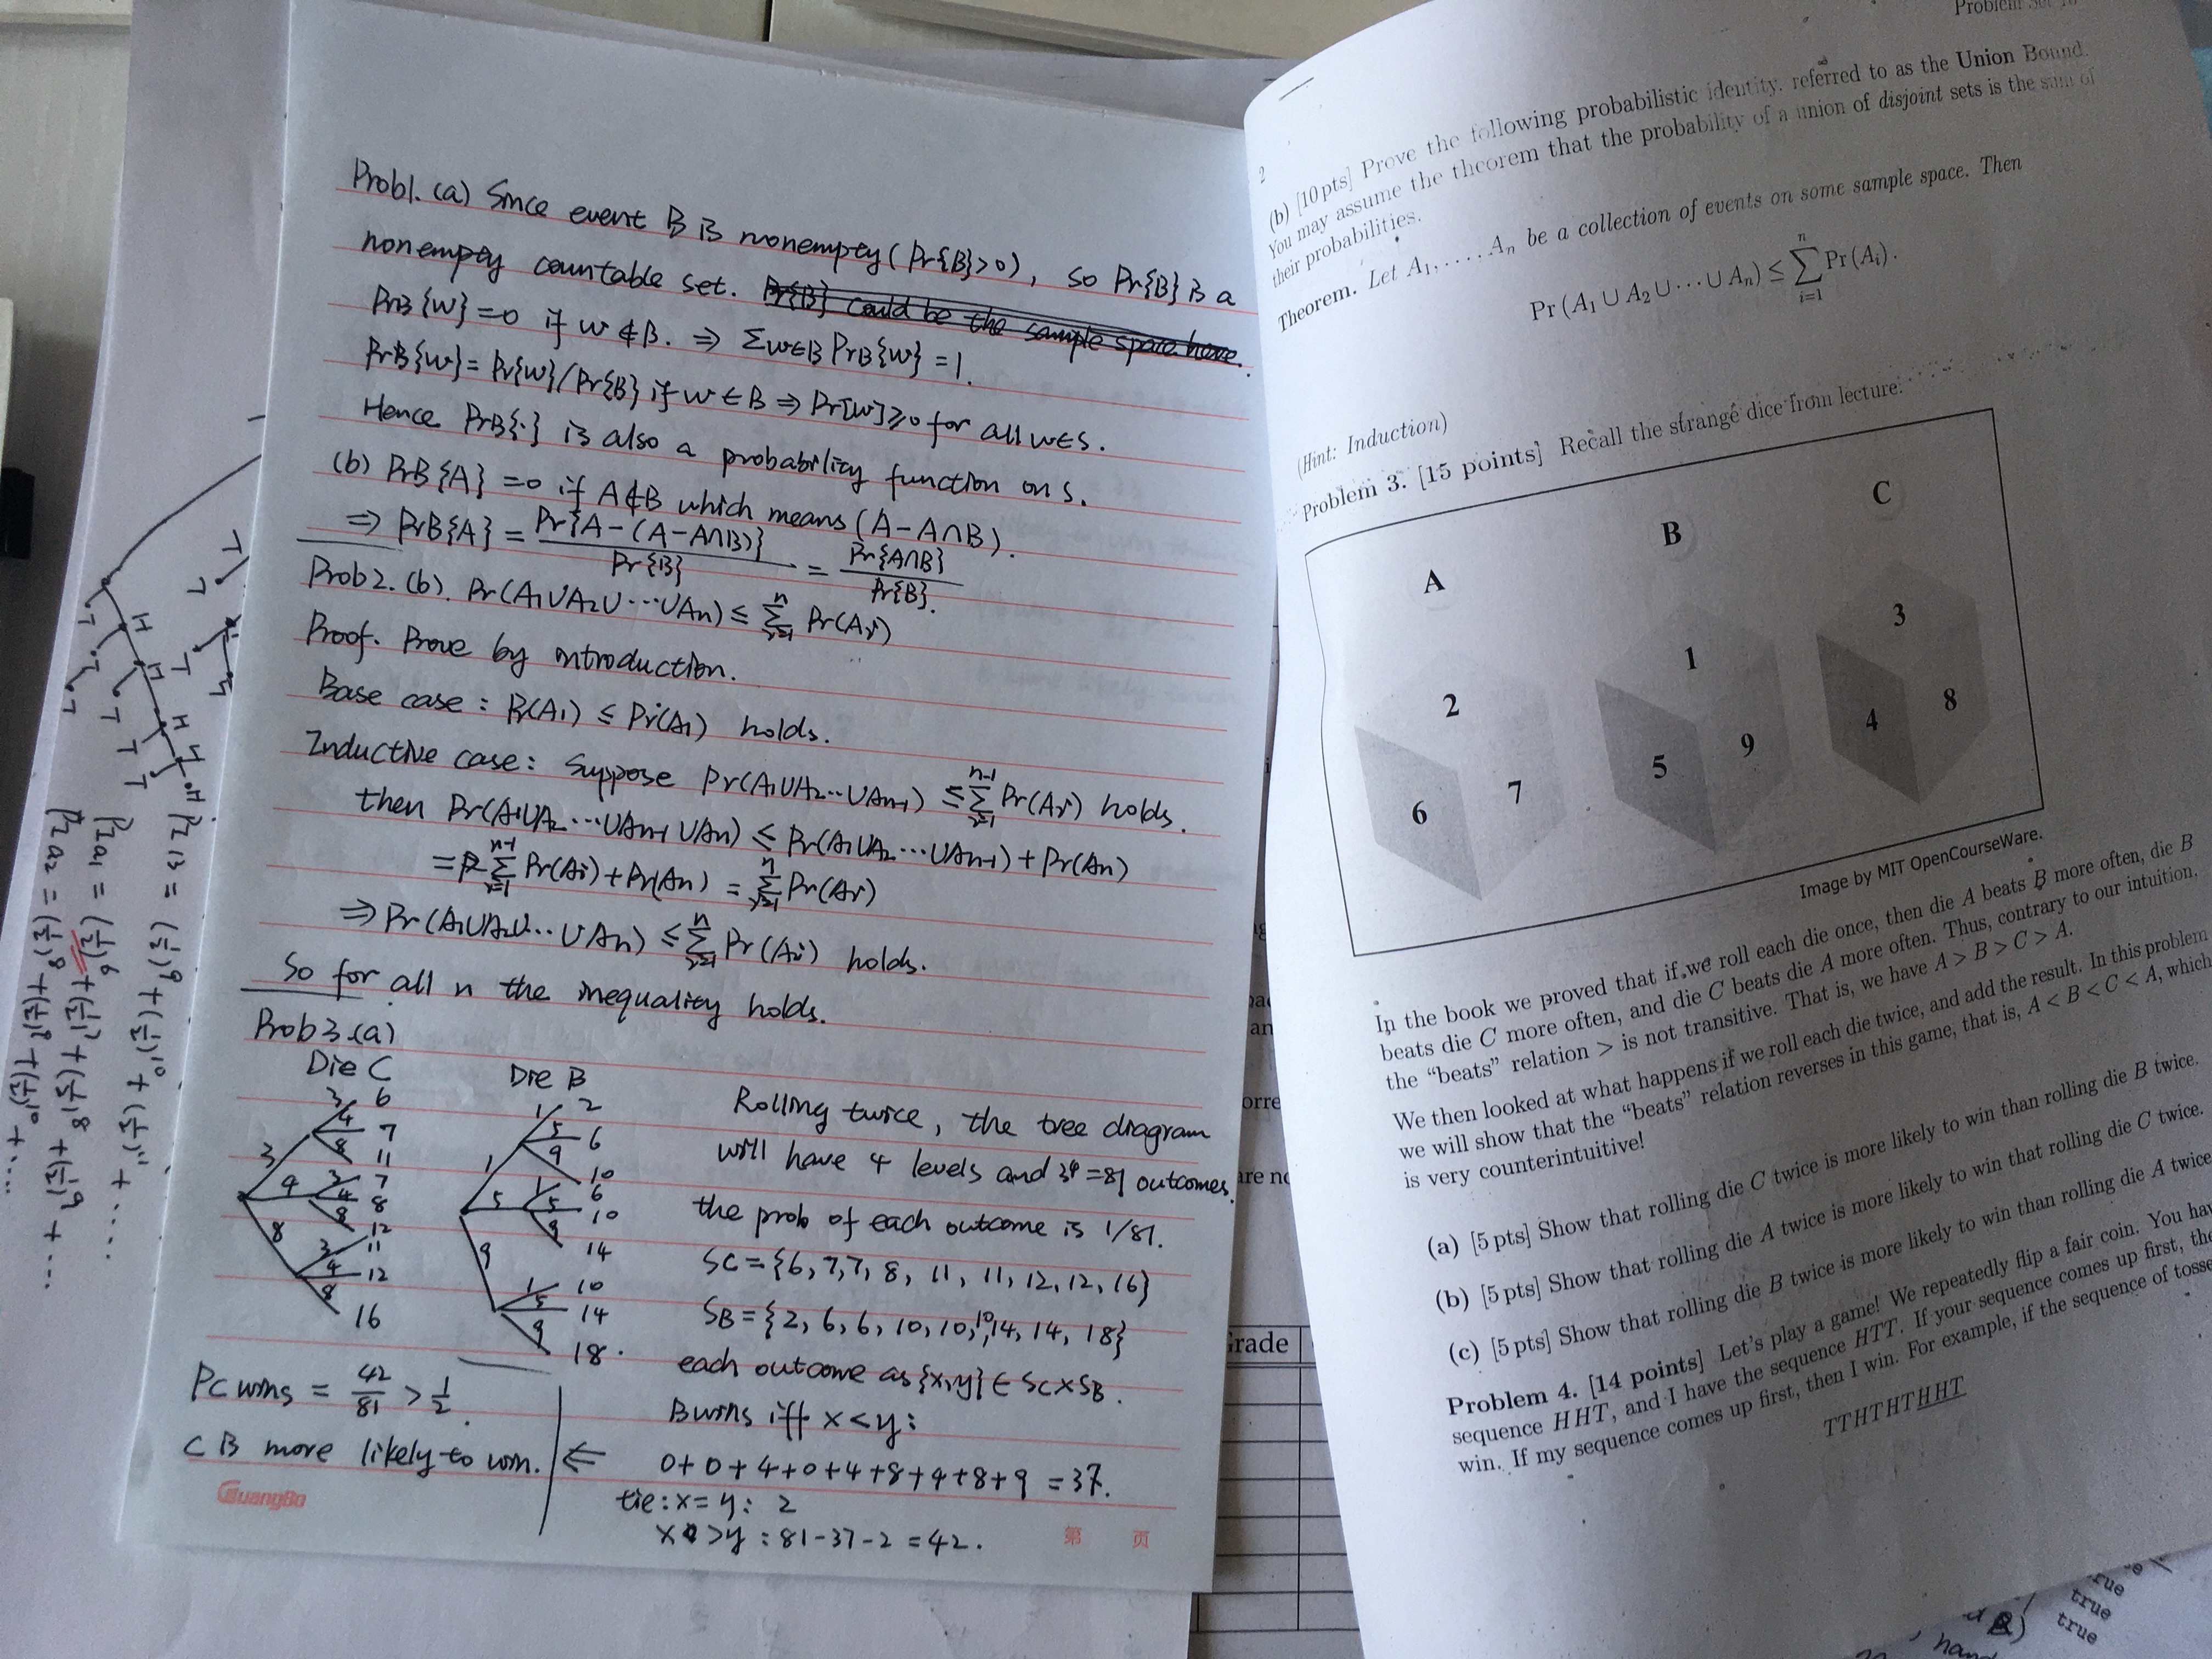 Prob1. (a) Since event B is nonempty (Pr{B}>0), so Pr{B} is a
nonempty countable set. Pr{B} could be the sample space here.
PrB{w}=0 if w∉B. ⇒ Σw∈B PrB{w}=1.
PrB{w}=Pr{w}/Pr{B} if w∈B ⇒ Pr[w]≥0 for all w∈S.
Hence PrB{·} is also a probability function on S.
(b) PrB{A}=0 if A∉B which means (A-A∩B).
⇒ PrB{A} = Pr{A-(A-A∩B)}/Pr{B} = Pr{A∩B}/Pr{B}.
Prob2. (b). Pr(A1∪A2∪···∪An) ≤ Σ_{i=1}^{n} Pr(Ai)
Proof. Prove by introduction.
Base case: Pr(A1) ≤ Pr(A1) holds.
Inductive case: Suppose Pr(A1∪A2···∪An-1) ≤ Σ_{i=1}^{n-1} Pr(Ai) holds.
then Pr(A1∪A2···∪An-1∪An) ≤ Pr(A1∪A2···∪An-1)+Pr(An)
= Σ_{i=1}^{n-1} Pr(Ai)+Pr(An) = Σ_{i=1}^{n} Pr(Ai)
⇒ Pr(A1∪A2∪···∪An) ≤ Σ_{i=1}^{n} Pr(Ai) holds.
So for all n the inequality holds.
Prob3.(a)
Die C
3
3 6
4 7
8 11
4
3 7
4 8
8 12
8
3 11
4 12
8 16
Die B
1
1 2
5 6
9 10
5
1 6
5 10
9 14
9
1 10
5 14
9 18.
Rolling twice, the tree diagram
will have 4 levels and 3⁴=81 outcomes.
the prob of each outcome is 1/81.
SC={6,7,7,8,11,11,12,12,16}
SB={2,6,6,10,10,10,14,14,18}
each outcome as {x,y}∈SC×SB.
B wins iff x<y:
0+0+4+0+4+8+4+8+9 =37.
tie: x=y: 2
x>y: 81-37-2=42.
PC wins = 42/81 > 1/2.
C is more likely to win. ⇐
GuangBo
第 页
2
(b) [10 pts] Prove the following probabilistic identity, referred to as the Union Bound.
You may assume the theorem that the probability of a union of disjoint sets is the sum of
their probabilities.
Theorem. Let A1, ..., An be a collection of events on some sample space. Then
Pr (A1 ∪ A2 ∪ ··· ∪ An) ≤ Σ_{i=1}^{n} Pr (Ai).
(Hint: Induction)
Problem 3. [15 points] Recall the strange dice from lecture:
A
B
C
2
6
7
1
5
9
3
4
8
Image by MIT OpenCourseWare.
In the book we proved that if we roll each die once, then die A beats B more often, die B
beats die C more often, and die C beats die A more often. Thus, contrary to our intuition,
the "beats" relation > is not transitive. That is, we have A > B > C > A.
We then looked at what happens if we roll each die twice, and add the result. In this problem
we will show that the "beats" relation reverses in this game, that is, A < B < C < A, which
is very counterintuitive!
(a) [5 pts] Show that rolling die C twice is more likely to win than rolling die B twice.
(b) [5 pts] Show that rolling die A twice is more likely to win that rolling die C twice.
(c) [5 pts] Show that rolling die B twice is more likely to win than rolling die A twice
Problem 4. [14 points] Let's play a game! We repeatedly flip a fair coin. You hav
sequence HHT, and I have the sequence HTT. If your sequence comes up first, the
win. If my sequence comes up first, then I win. For example, if the sequence of tosse
TTHTHTHHT
rade
true
true